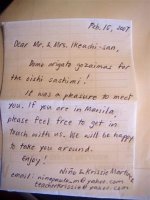 Feb. 15, 2007
Dear Mr. & Mrs. Ikeuchi-san,
Domo arigato gozaimas for
the oishi sashimi!
It was a pleasure to meet
you. If you are in Manila,
please feel free to get in
touch with us. We will be happy
to take you around.
Enjoy!
Niño & Krissie
email: